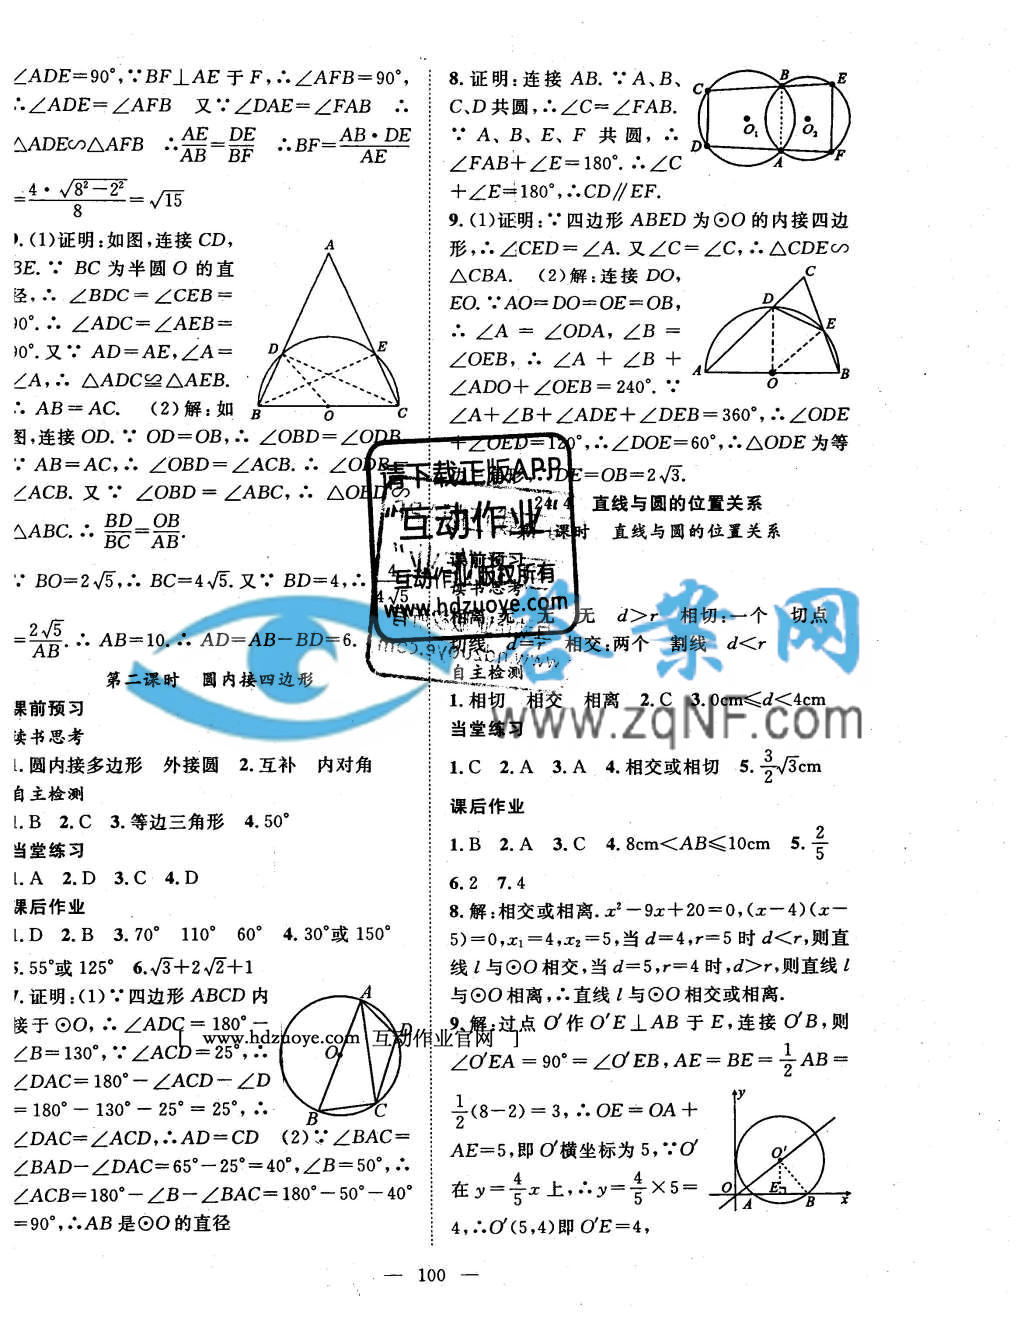 ∠ADE=90°,∵BF⊥AE于F,∴∠AFB=90°,
∴∠ADE=∠AFB 又∵∠DAE=∠FAB ∴
△ADE∽△AFB ∴AE/AB=DE/BF ∴BF=AB·DE/AE
=4·√(8²-2²)/8=√15
9.(1)证明:如图,连接CD,
BE.∵ BC 为半圆 O 的直
径,∴ ∠BDC=∠CEB=
90°.∴ ∠ADC=∠AEB=
90°.又∵ AD=AE,∠A=
∠A,∴ △ADC≌△AEB.
∴ AB=AC. (2)解:如
图,连接OD.∵ OD=OB,∴ ∠OBD=∠ODB.
∵ AB=AC,∴ ∠OBD=∠ACB.∴ ∠ODB=
∠ACB. 又∵ ∠OBD=∠ABC,∴ △OBD∽
△ABC.∴ BD/BC=OB/AB.
∵ BO=2√5,∴ BC=4√5.又∵ BD=4,∴ 4/4√5
=2√5/AB.∴ AB=10.∴ AD=AB-BD=6.
第二课时 圆内接四边形
课前预习
读书思考
1.圆内接多边形 外接圆 2.互补 内对角
自主检测
1.B 2.C 3.等边三角形 4.50°
当堂练习
1.A 2.D 3.C 4.D
课后作业
1.D 2.B 3.70° 110° 60° 4.30°或150°
5.55°或125° 6.√3+2√2+1
7.证明:(1)∵四边形ABCD内
接于⊙O,∴∠ADC=180°-
∠B=130°,∵∠ACD=25°,∴
∠DAC=180°-∠ACD-∠D
=180°-130°-25°=25°,∴
∠DAC=∠ACD,∴AD=CD (2)∵∠BAC=
∠BAD-∠DAC=65°-25°=40°,∠B=50°,∴
∠ACB=180°-∠B-∠BAC=180°-50°-40°
=90°,∴AB是⊙O的直径
A
D
E
B
O
C
A
D
O
B
C
8.证明:连接 AB.∵A、B、
C、D共圆,∴∠C=∠FAB.
∵ A、B、E、F 共圆,∴
∠FAB+∠E=180°.∴∠C
+∠E=180°,∴CD∥EF.
9.(1)证明:∵四边形ABED为⊙O的内接四边
形,∴∠CED=∠A.又∠C=∠C,∴△CDE∽
△CBA. (2)解:连接DO,
EO.∵AO=DO=OE=OB,
∴ ∠A = ∠ODA,∠B =
∠OEB,∴ ∠A + ∠B +
∠ADO+∠OEB=240°.∵
∠A+∠B+∠ADE+∠DEB=360°,∴∠ODE
+∠OED=120°,∴∠DOE=60°,∴△ODE为等
DE=OB=2√3.
24.4 直线与圆的位置关系
第一课时 直线与圆的位置关系
课前预习
读书思考
相离:无 无 无 d>r 相切:一个 切点
切线 d=r 相交:两个 割线 d<r
自主检测
1.相切 相交 相离 2.C 3.0cm≤d<4cm
当堂练习
1.C 2.A 3.A 4.相交或相切 5.3/2√3cm
课后作业
1.B 2.A 3.C 4.8cm<AB≤10cm 5.2/5
6.2 7.4
8.解:相交或相离.x²-9x+20=0,(x-4)(x-
5)=0,x₁=4,x₂=5,当d=4,r=5时d<r,则直
线l与⊙O相交,当d=5,r=4时,d>r,则直线l
与⊙O相离,∴直线l与⊙O相交或相离.
9.解:过点O′作O′E⊥AB于E,连接O′B,则
∠O′EA=90°=∠O′EB,AE=BE=1/2AB=
1/2(8-2)=3,∴OE=OA+
AE=5,即O′横坐标为5,∵O′
在y=4/5x上,∴y=4/5×5=
4,∴O′(5,4)即O′E=4,
C
B
E
O₁
O₂
D
A
F
C
D
E
A
O
B
y
O′
O
A
E
B
x
请下载正版APP
"互动作业"
互动作业 版权所有
www.hdzuoye.com
答案网
www.zqNF.com
[ www.hdzuoye.com 互动作业官网 ]
— 100 —